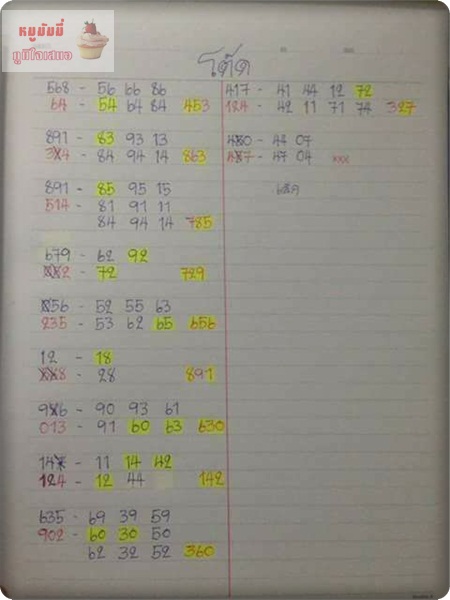 หมูมัมมี่
ภูมิใจเสมอ
โต๊ด
568 - 56 66 86
64 - 54 64 84 453
891 - 83 93 13
324 - 84 94 14 863
891 - 85 95 15
514 - 81 91 11
84 94 14 785
679 - 62 92
2 - 72 729
56 - 52 55 63
235 - 53 62 65 656
12 - 18
8 - 28 891
986 - 90 93 61
013 - 91 60 63 630
14 - 11 14 42
124 - 12 44 142
635 - 69 39 59
902 - 60 30 50
62 32 52 360
417 - 41 44 12 72
124 - 42 11 71 74 327
480 - 44 07
487 - 47 04 xxx